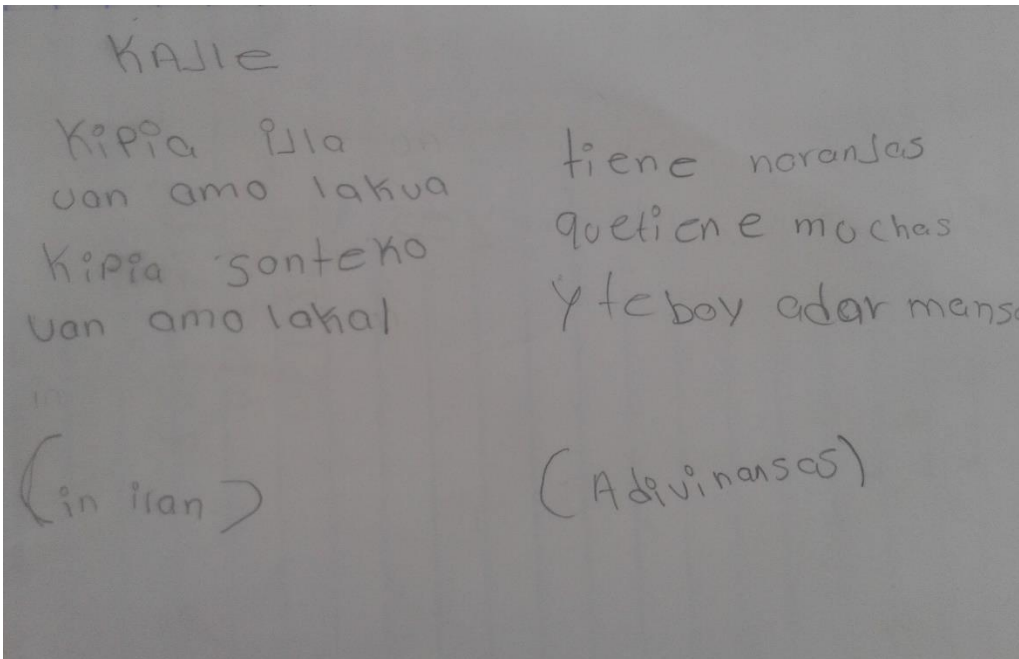 KAlle
Kipia illa
uan amo lakua
Kipia sonteko
uan amo lakal
(in ilan)
tiene noranjas
quetiene mochas
y te boy adar
(Adivinansas)